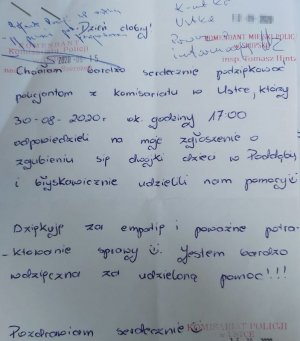 "Dzień dobry!
KOMENDANT
Komisariatu Policji
KOMENDANT MIEJSKI POLICJI
Chciałam bardzo serdecznie podziękować
policjantom z komisariatu w Ustce, którzy
30-08-2020r ok. godziny 17:00
odpowiedzieli na moje zgłoszenie o
zgubieniu się dwójki dzieci w Poddąbiu
i błyskawicznie udzielili nam pomocy
Dziękuję za empatię i poważne potra-
-ktowanie sprawy. Jestem bardzo
wdzięczna za udzieloną pomoc!!!
Pozdrawiam serdecznie
KOMISARIAT POLICJI
w USTCE